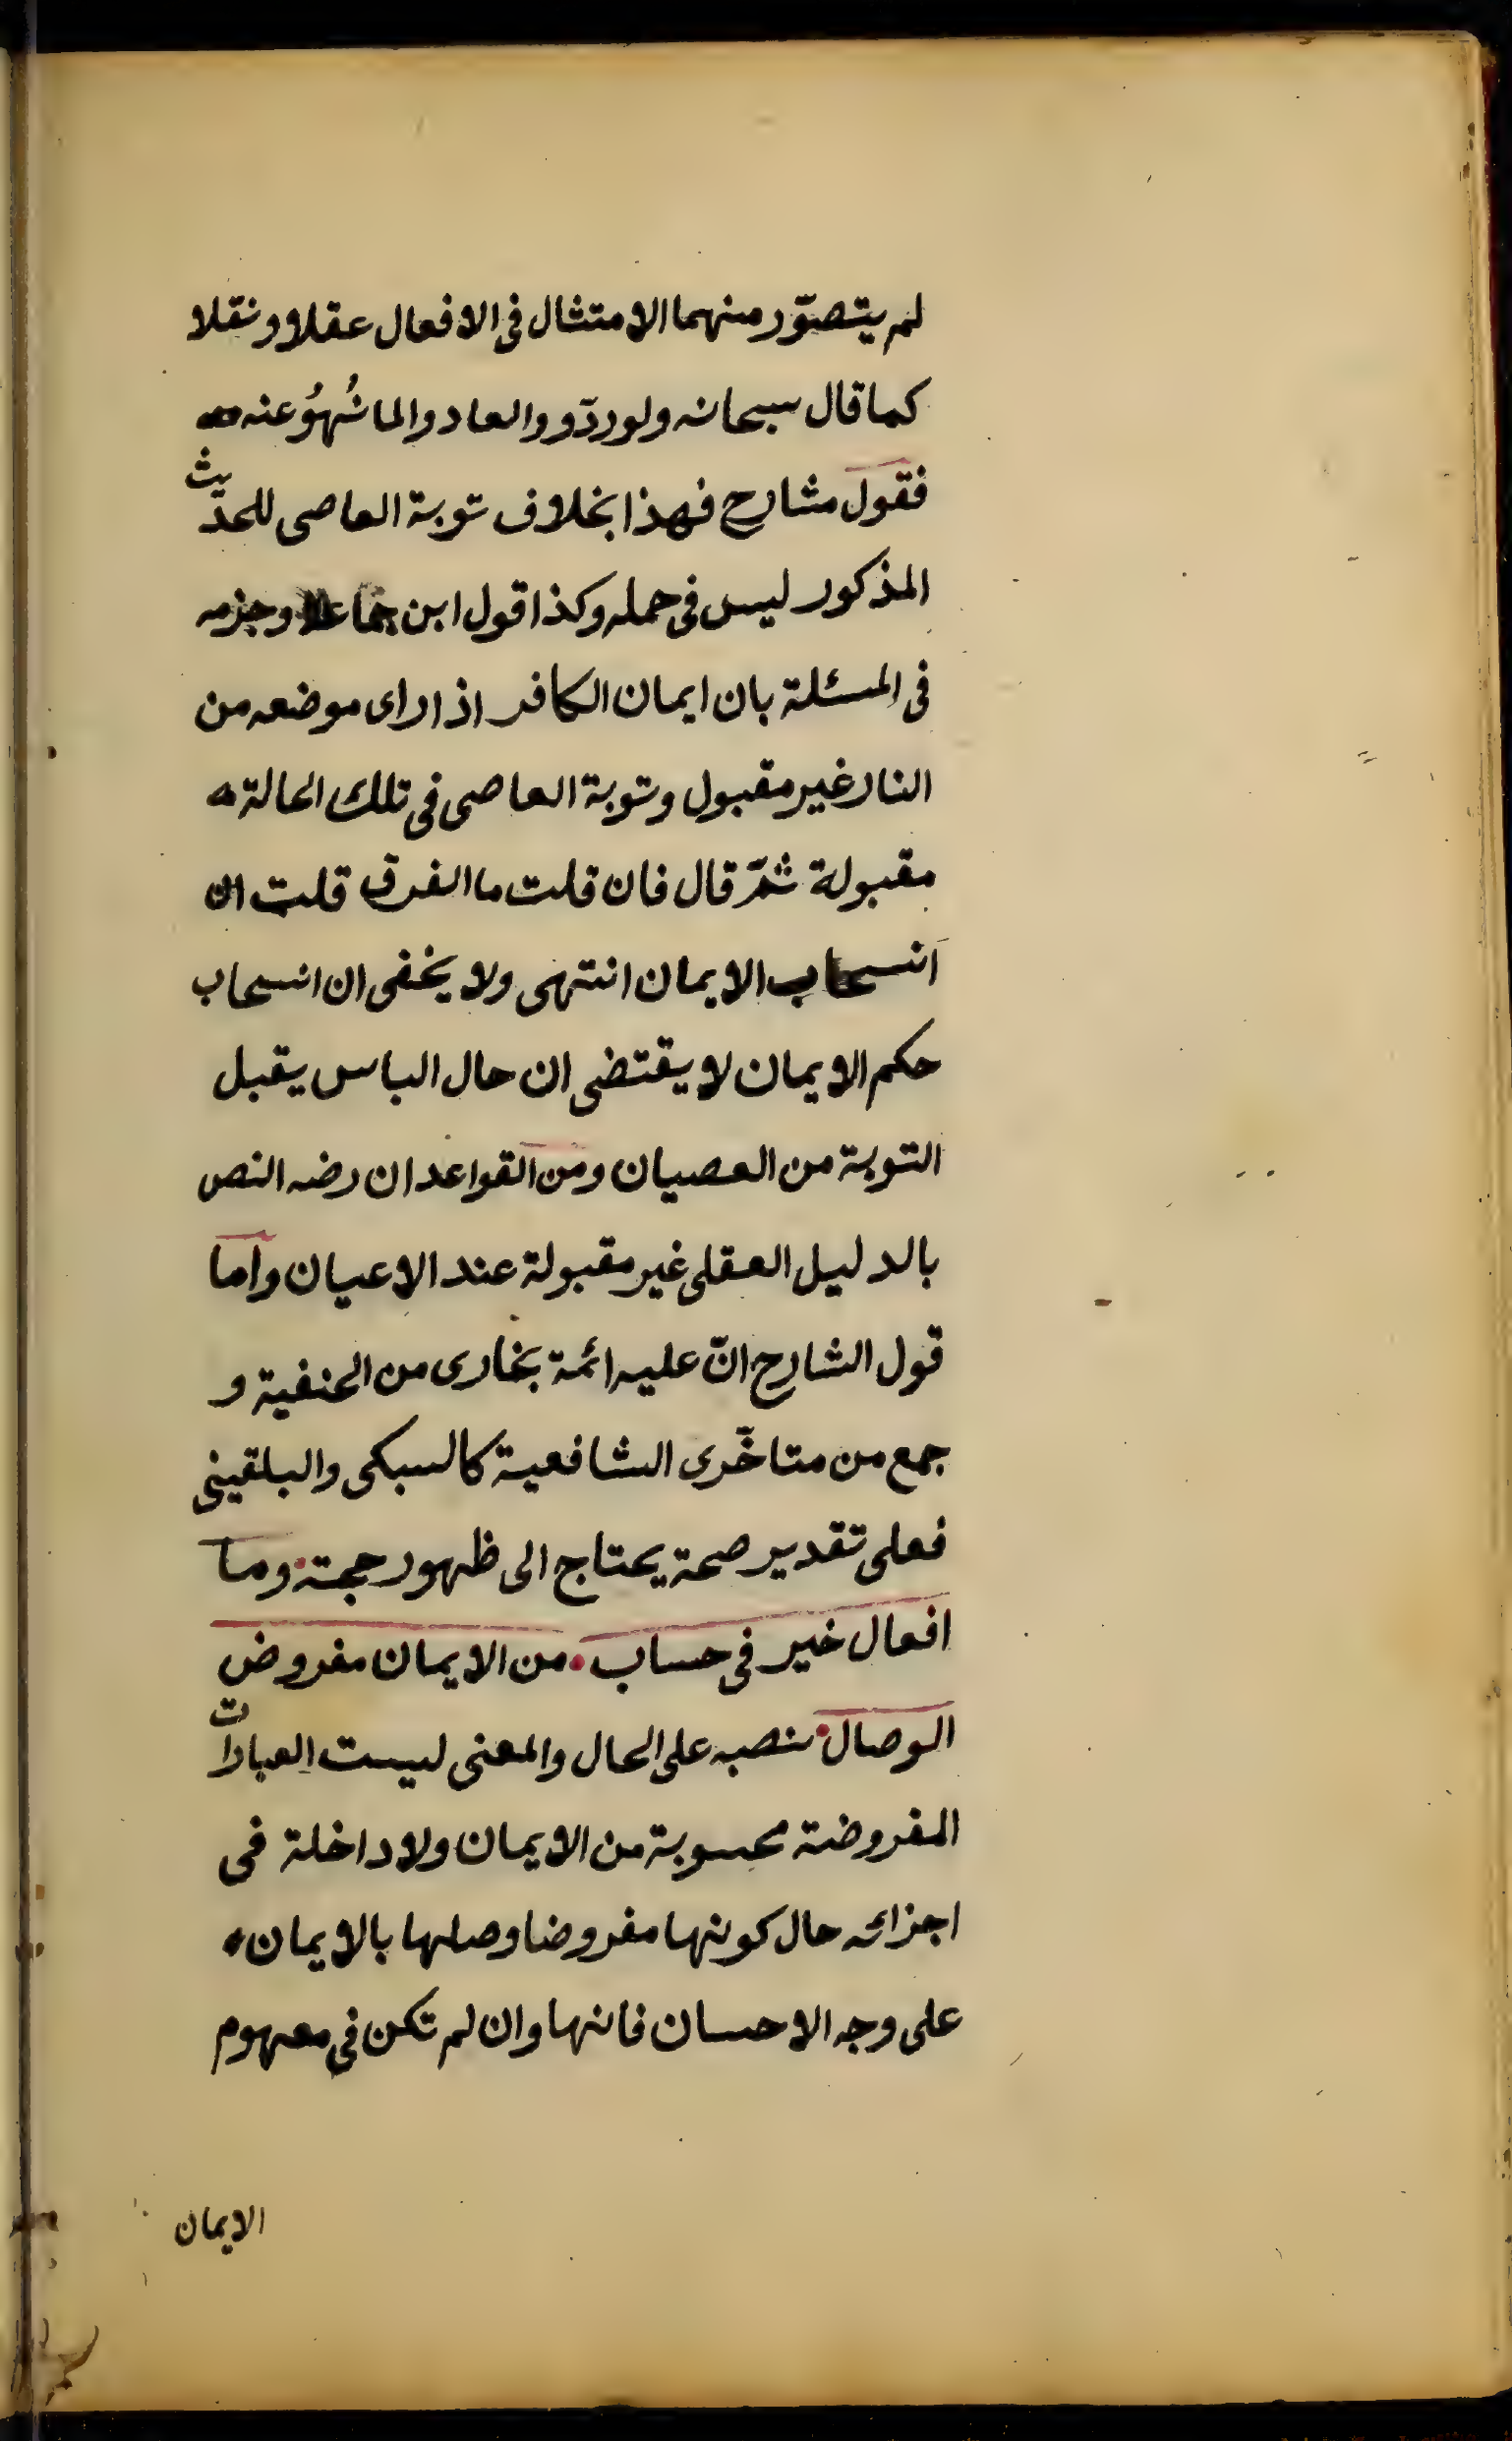 لم يتصوّر منهما الامتثال فى الافعال عقلا ونقلا
كما قال سبحانه ولو ردّوا لعادوا لما نُهوُ عنه
فقول شارح فهذا بخلاف توبة العاصى للحديث
المذكور ليس فى حمله وكذا قول ابن جماعة وجزمه
فى المسئلة بان ايمان الكافر اذا راى موضعه من
النار غير مقبول وتوبة العاصى فى تلك الحالة
مقبولة ثمّ قال فان قلت ما الفرق قلت ان
انسحاب الايمان انتهى ولا يخفى ان انسحاب
حكم الايمان لا يقتضى ان حال الباس يقبل
التوبة من العصيان ومن القواعد ان رضه النص
بالدليل العقلى غير مقبولة عند الاعيان واما
قول الشارح انّ عليه ائمة بخارى من الحنفية و
جمع من متاخّرى الشافعية كالسبكى والبلقينى
فعلى تقدير صحة يحتاج الى ظهور حجته وما
افعال خير فى حساب من الايمان مفروض
الوصال نصبه على الحال والمعنى ليست العبادات
المفروضة محسوبة من الايمان ولا داخلة فى
اجزائه حال كونها مفروضا وصلها بالايمان
على وجه الاحسان فانها وان لم تكن فى مفهوم
الايمان